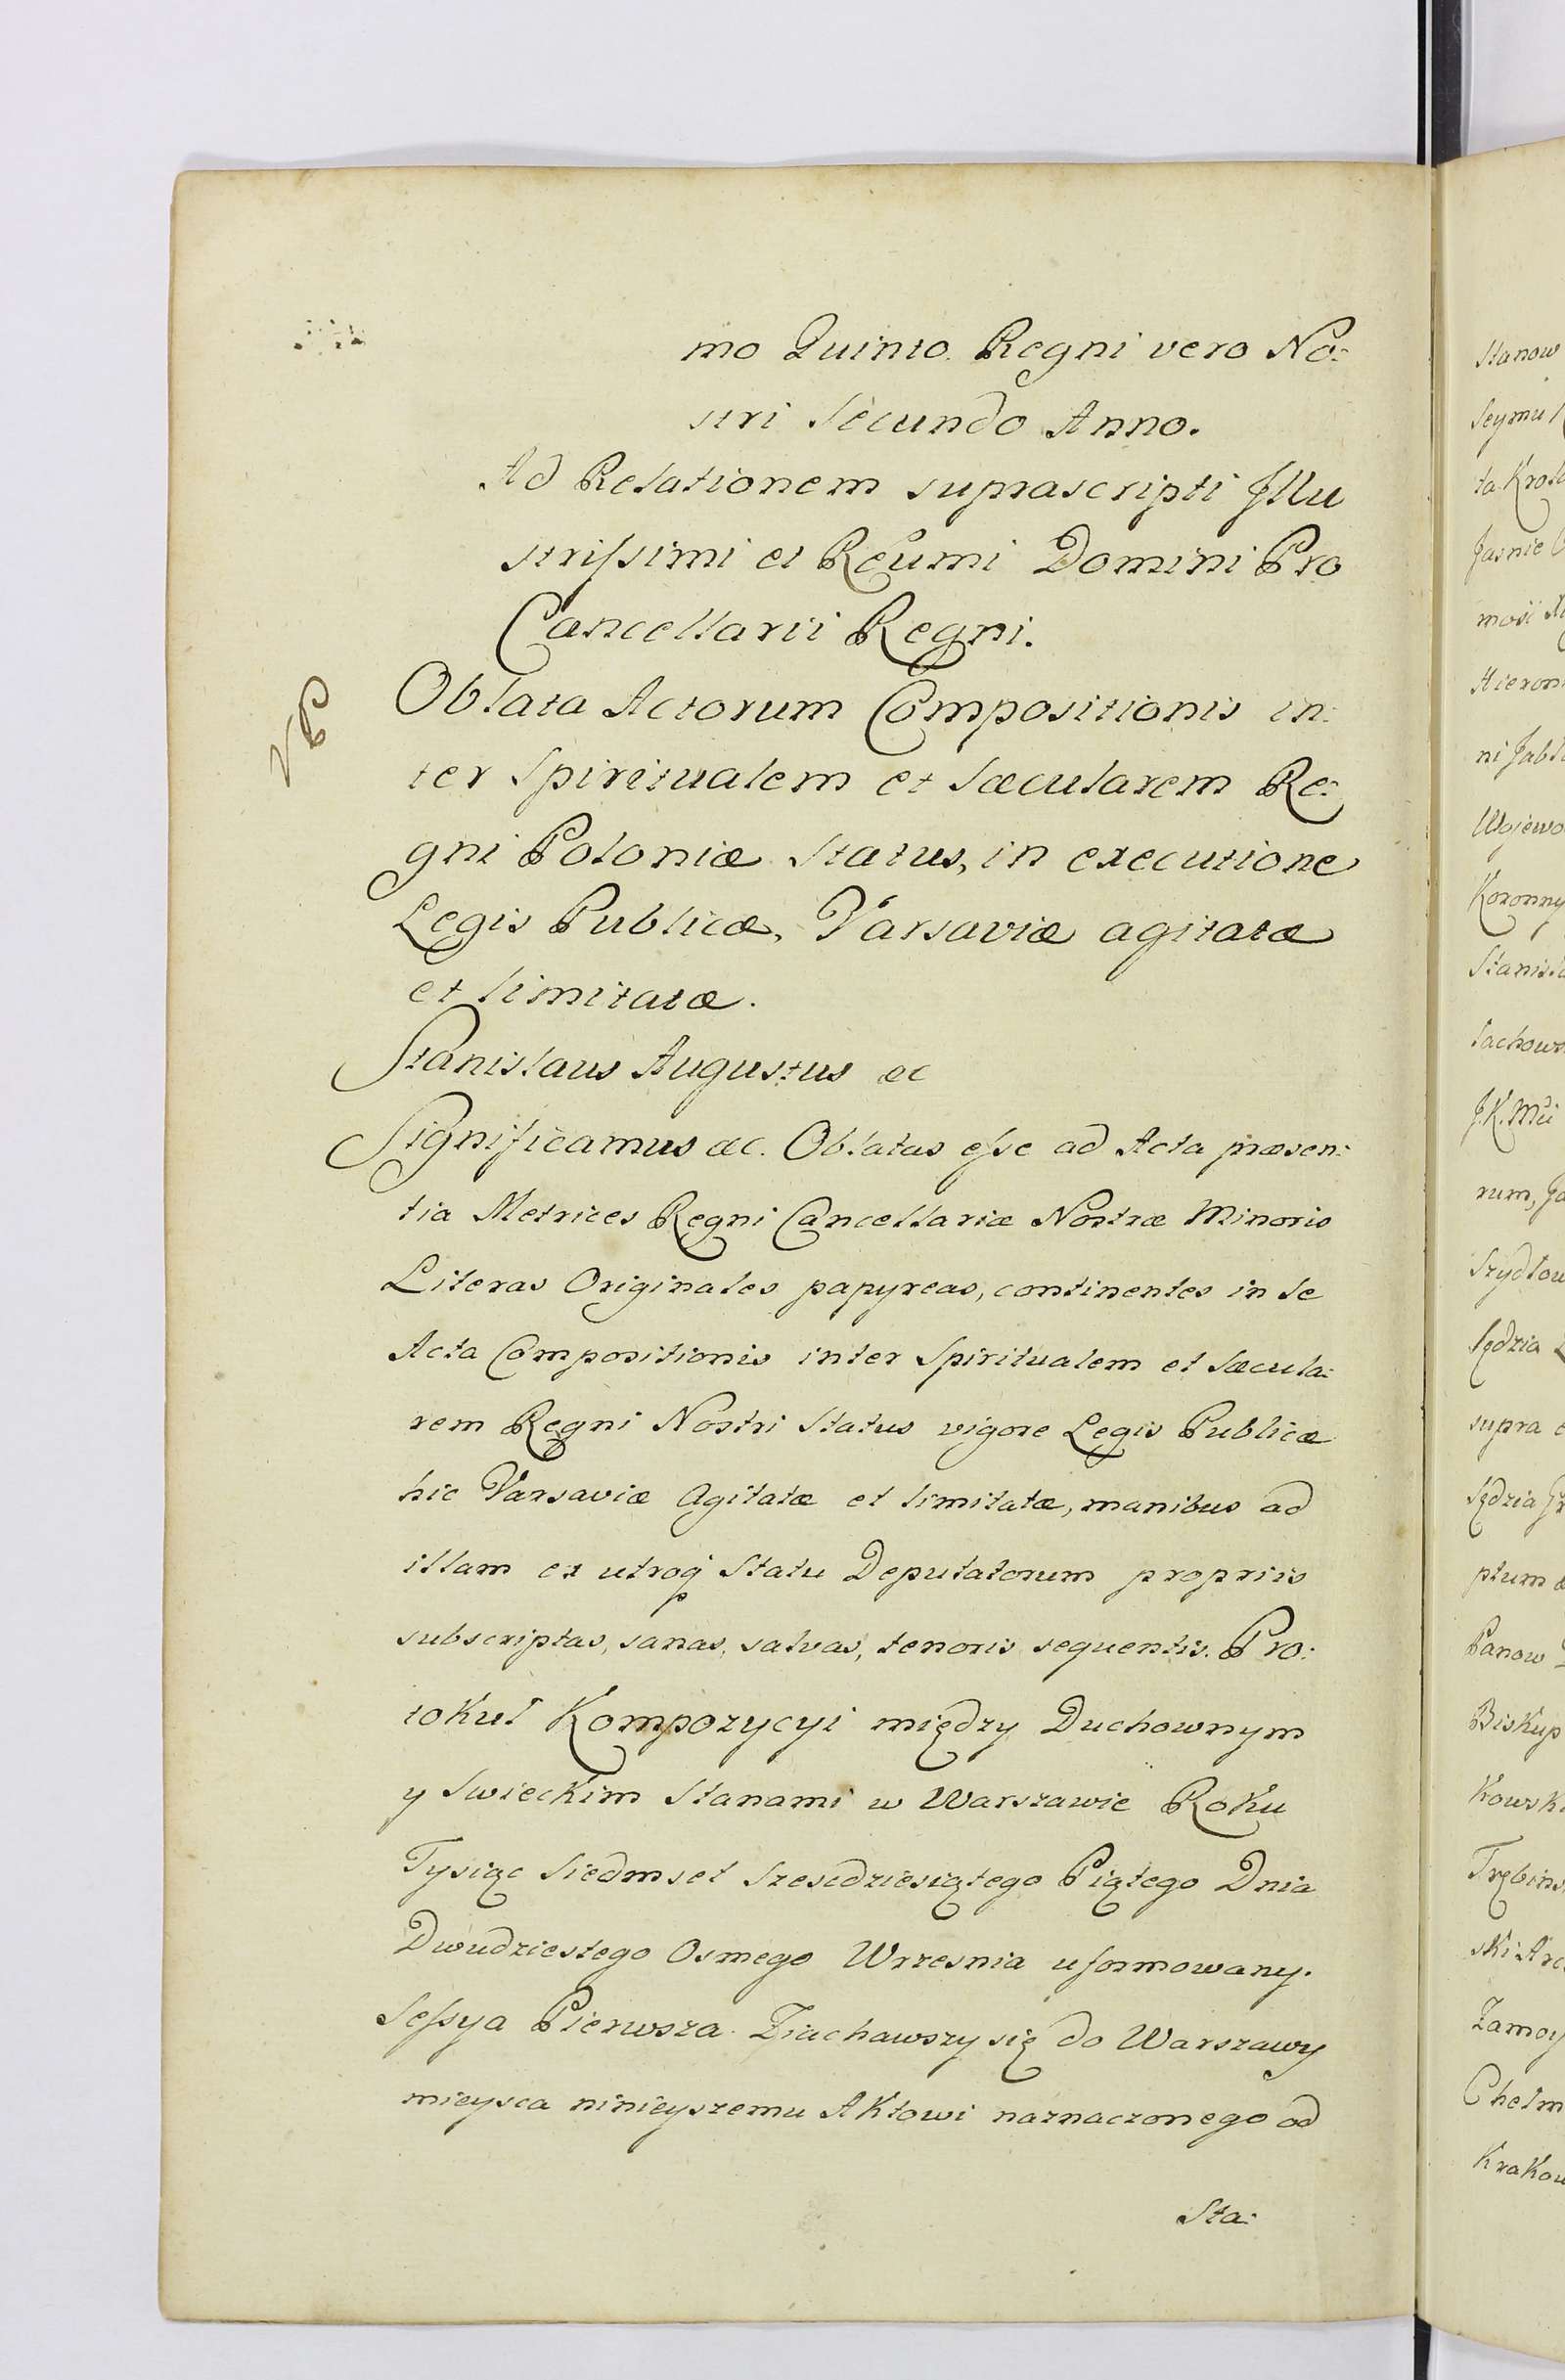 mo Quinto. Regni vero No:
stri Secundo Anno.
Ad Relationem suprascripti Jllu
strissimi et Reumi Domini Pro
Cancellarii Regni.
Oblata Actorum Compositionis in:
ter Spiritualem et Sæcularem Re:
gni Poloniæ Status, in executione
Legis Publicæ, Varsaviæ agitatæ
et limitatæ.
Stanislaus Augustus &c
Significamus &c. Oblatas esse ad Acta præsen:
tia Metrices Regni Cancellariæ Nostræ Minoris
Literas Originales papyreas, continentes in se
Acta Compositionis inter Spiritualem et Sæcula:
rem Regni Nostri Status vigore Legis Publicæ
hic Varsaviæ Agitatæ et limitatæ, manibus ad
illam ex utroq Statu Deputatorum propriis
subscriptas, sanas, salvas, tenoris sequentis. Pro:
tokuł Kompozycyi między Duchownym
y Swieckim Stanami w Warszawie Roku
Tysiąc Siedmset Szescdziesiątego Piątego Dnia
Dwudziestego Osmego Wrzesnia uformowany.
Sessya Pierwsza. Ziachawszy się do Warszawy
mieysca ninieyszemu Aktowi naznaczonego od
Sta:
Stanow
Seymu
Jasnie
mosi
Hieron
ni Jabł
Wojewo
Koronny
Stanisła
łachows
J.K. Mci
rum,
Szydłow
Sędzia
supra
Sędzia
ptum
Panow
Biskup
Kowsk
Trębins
ski
Zamoy
Chełm
Krakow